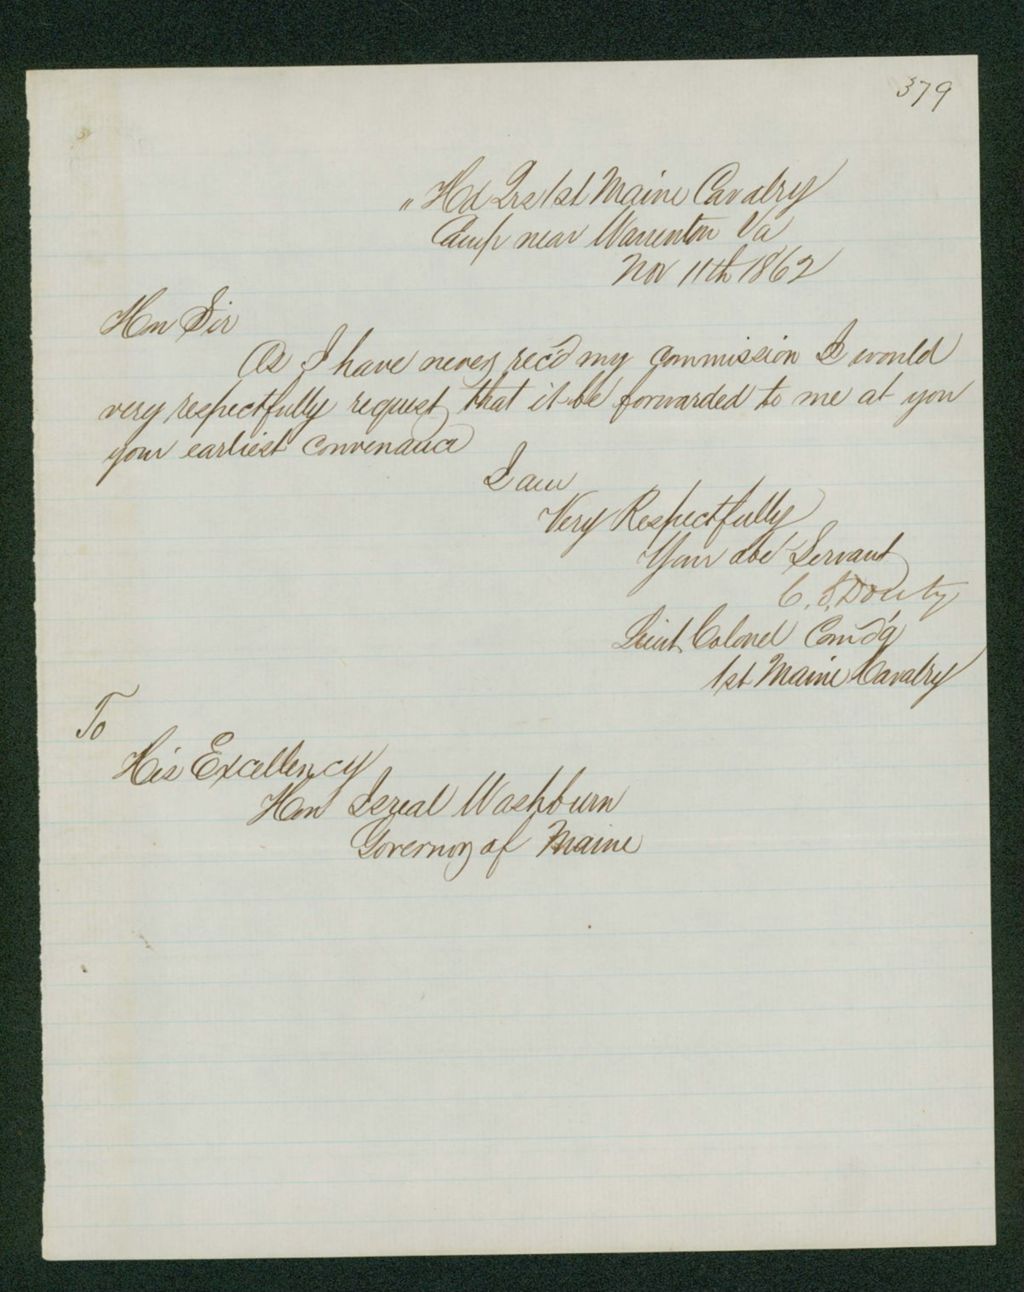 379
" Hd Qrs 1st Maine Cavalry
Camp near Warrenton Va
Nov 11th 1862
Hon Sir
As I have never rec'd my commission I would
very respectfully request that it be forwarded to me at you
your earliest convenance
I am
Very Respectfully
Your obe' Servant
C. S. Douty
Lieut Colonel Com'd'g
1st Maine Cavalry
To
His Excellency
Hon Isreal Washburn
Governor of Maine